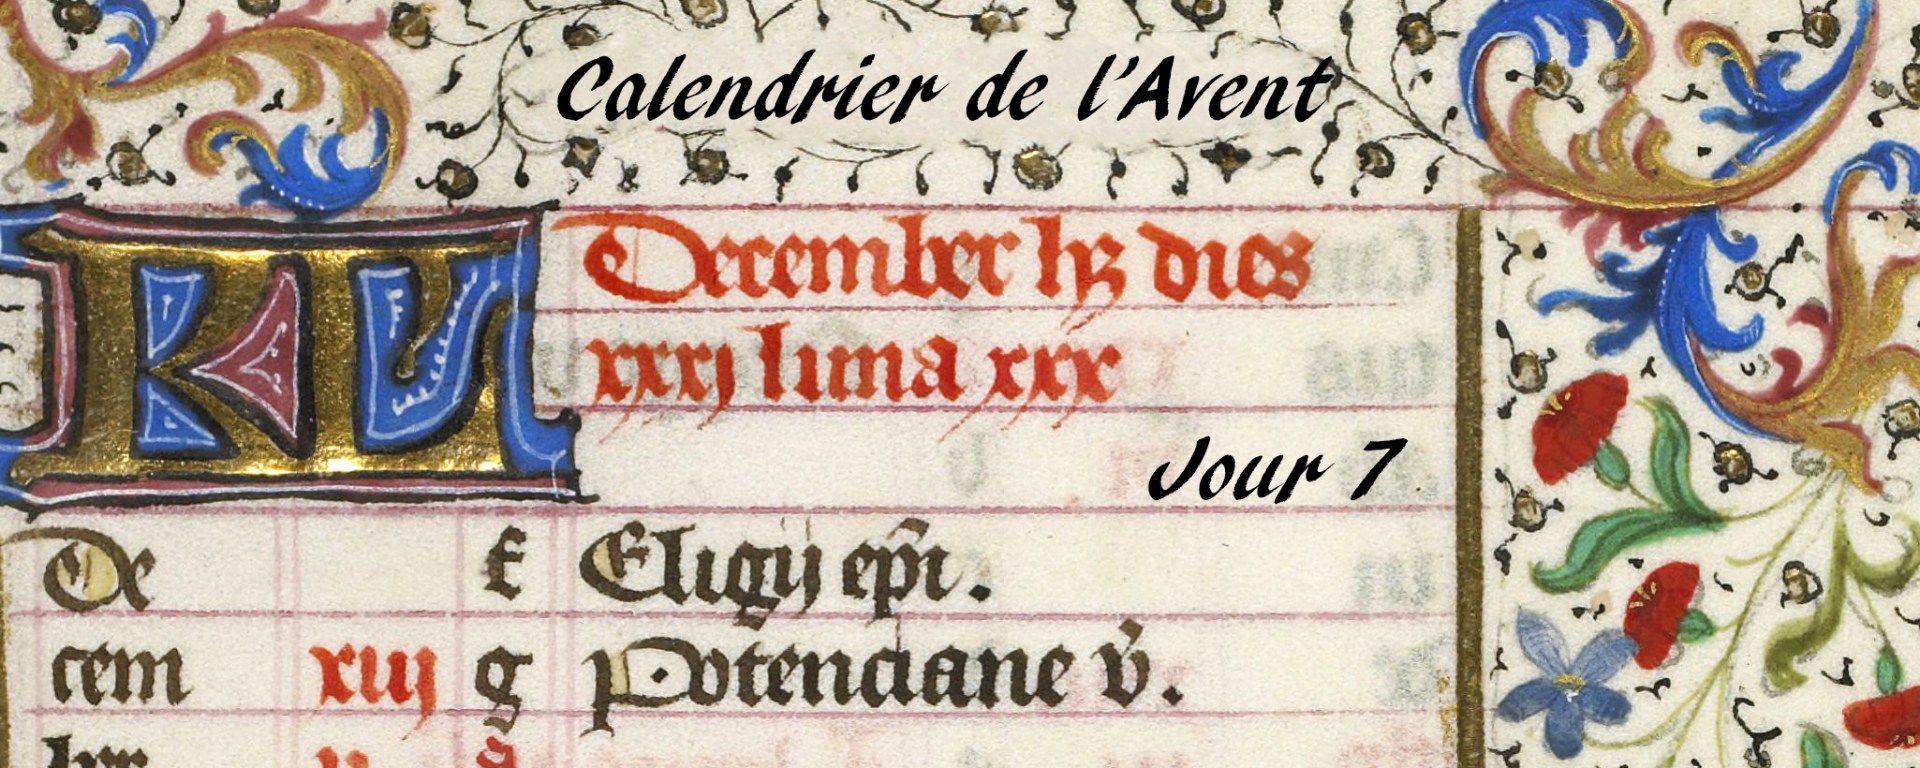 Calendrier de l'Avent
KL December hꝫ dies
xxxj luna xxx
Jour 7
De f Eligij ep̄i.
cem xiij g Potenciane v̄.